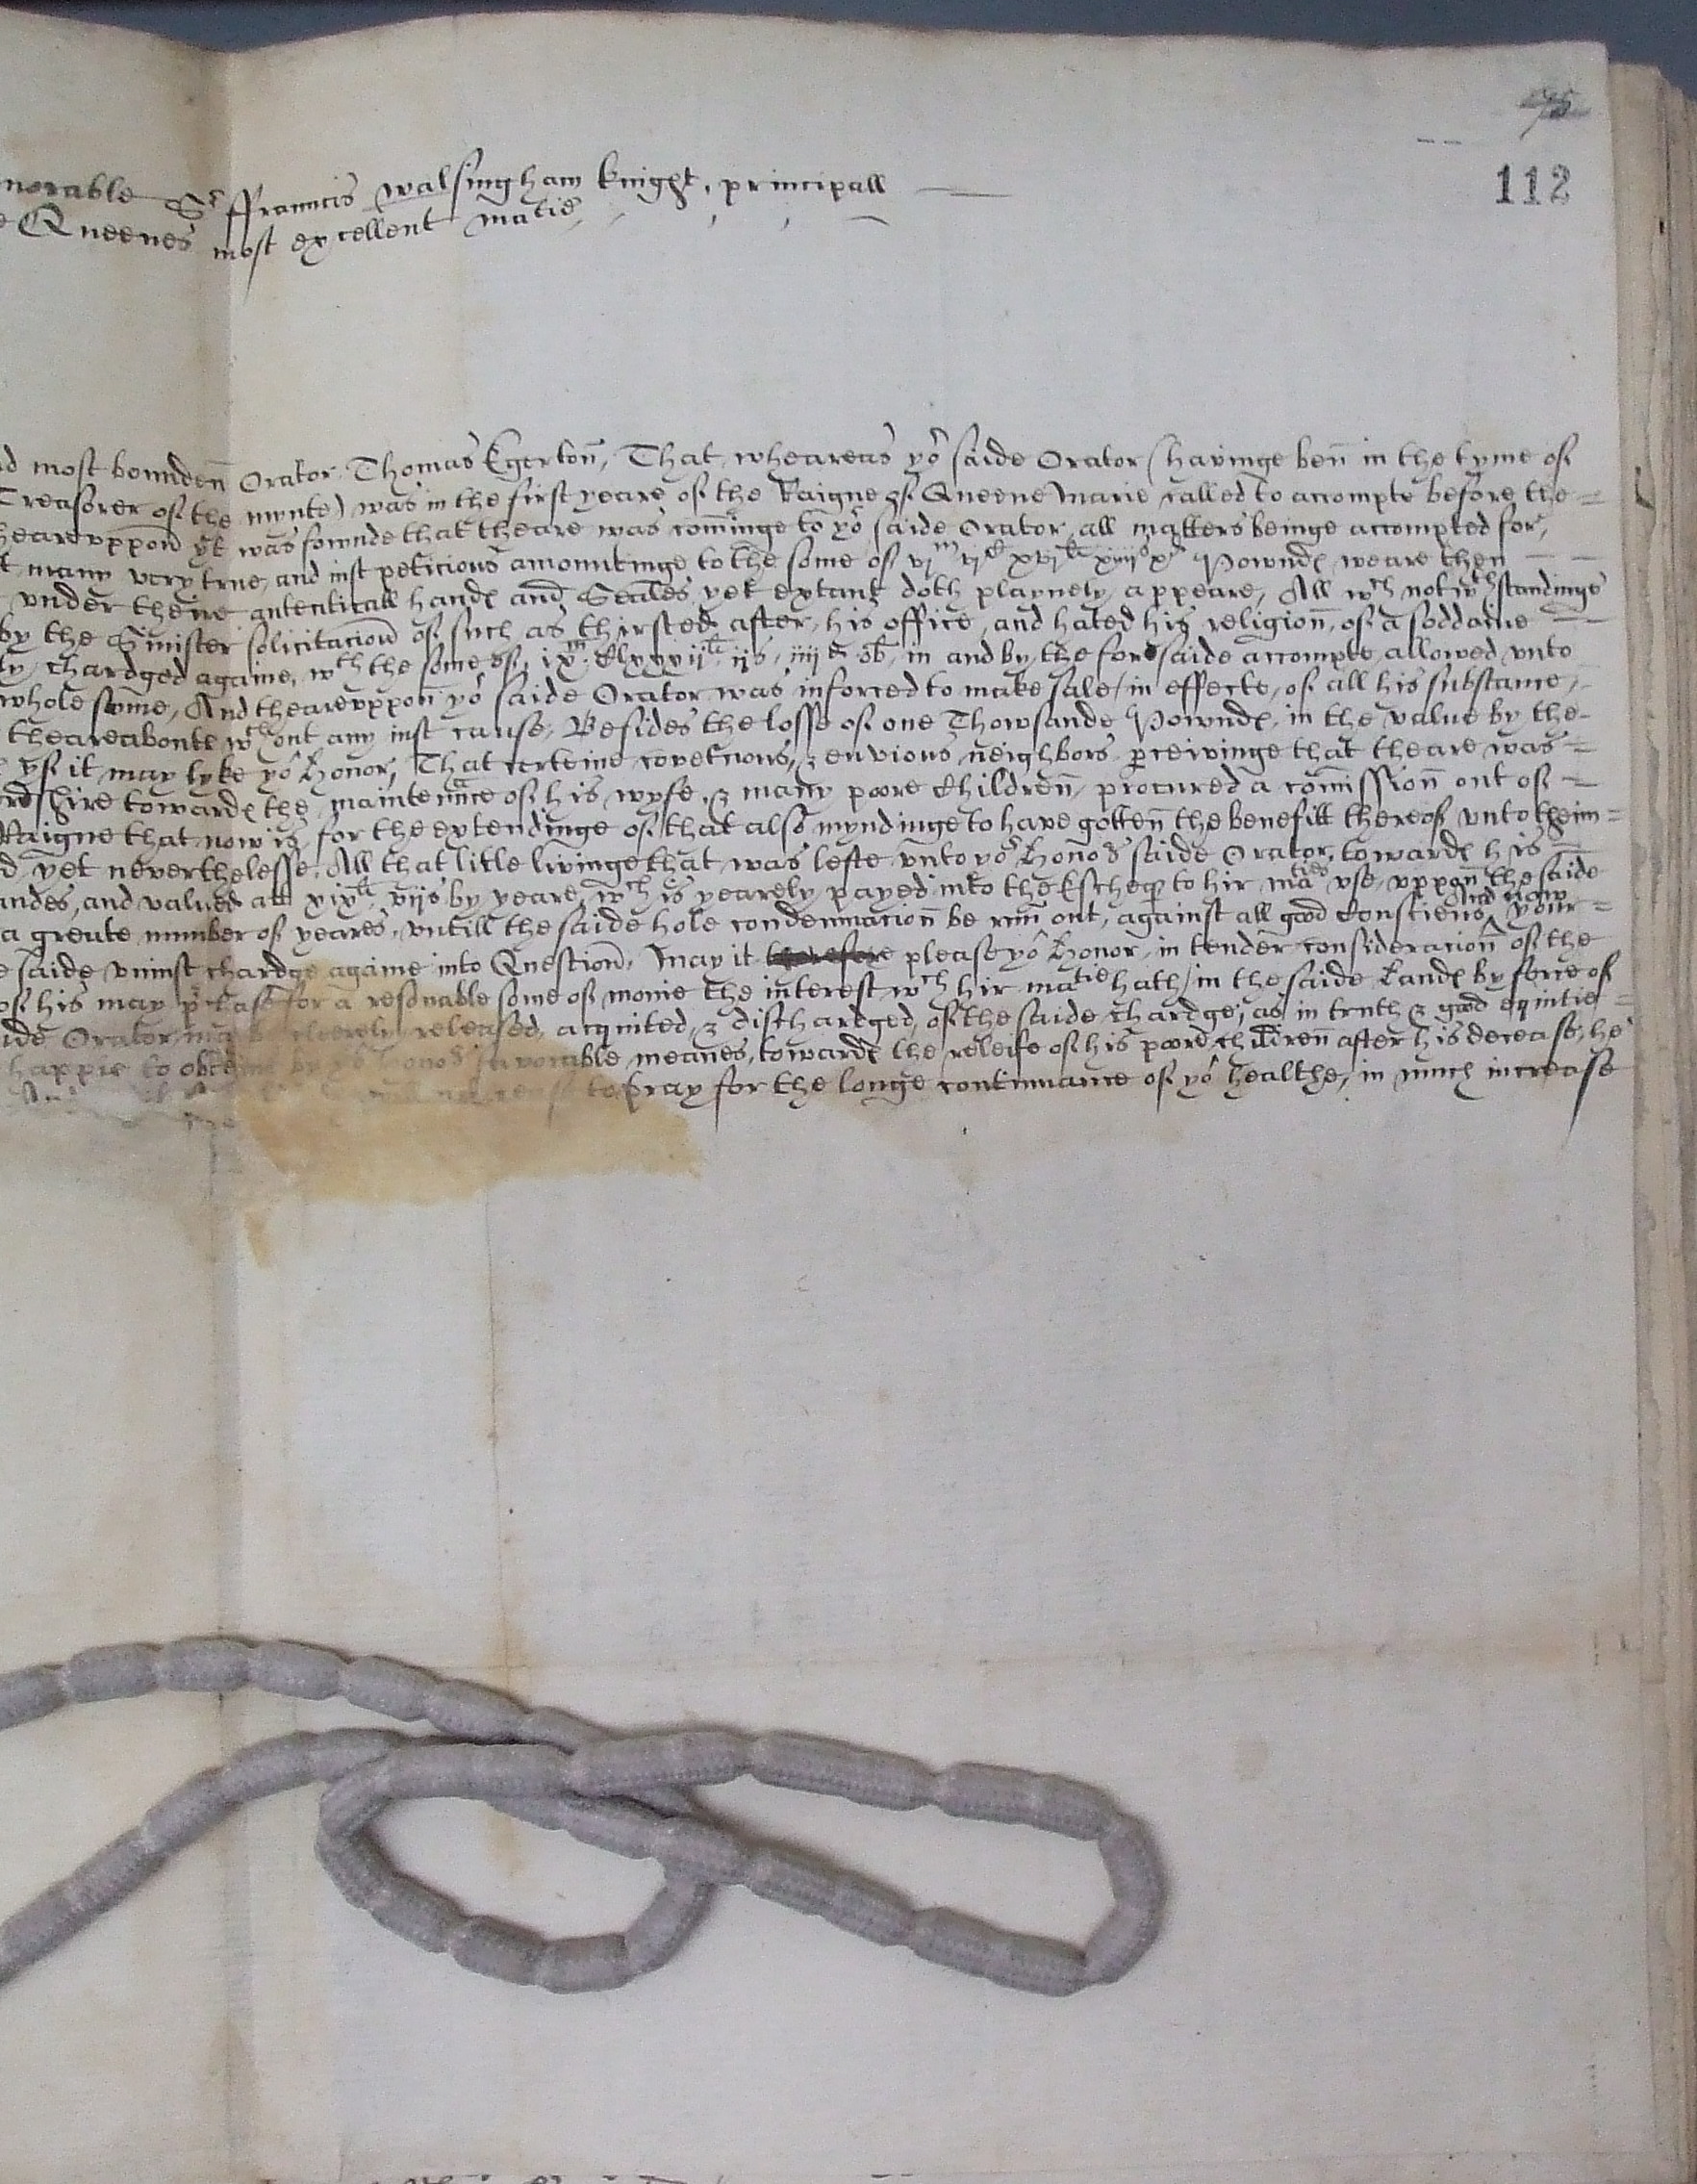 75
112
norable Sr ffrauncis walsingham knight, principall
e Queenes most excellent matie,
d most boundenn Orator Thomas Egertonn, That wheareas yor saide Orator (havinge benn in the tyme of
Treasorer of the mynte) was in the first yeare of the Raigne of Queene Marie called to accompte before the
heareuppon yt was fownde that theare was cominge to yor saide Orator, all matters beinge accompted for,
t many very true, and iust peticions amountinge to the some of vjm vjc xvjli xiiijs xd Pownd weare then
under theire autenticall hand and Seales yet extant doth playnely appeare, All wch notwthstandinge
by the Sinister solicitacion of such as thirsted after his office, and hated his religionn, of a soddaine
ly chardged againe, wth the some of ixm Clxxxvijli ijs iiijd ob, in and by the foresaide accompte allowed unto
whole some, And theareuppon yor saide Orator was inforced to make sale, in effecte, of all his substance,
theareaboute wthout any iust cause, Besides the losse of one Thowsande Pownd, in the value by the
yf it may lyke yor Honor, That certeine covetuous, & envious neighbors perceivinge that theare was
rdshire toward the maintenance of his wyfe & many poore Childrenn, procured a comissionn out of
Raigne that now is, for the extendinge of that also myndinge to have gottenn the benefitt thereof unto theim
d yet neverthelesse, All that litle livinge that was lefte unto yor Honors saide Orator, toward his
andes, and valued att xixli viijs by yeare, wch is yearely payed into thEschequer to hir maties use, uppon the saide
a greate number of yeares, untill the saide hole condemnacionn be runn out, against all good Consciens, And now your
e saide uniust chardge againe into Question, May it therefore please yor Honor, in tender consideracionn of the
of his may purchase for a resonable some of monie the interest wch hir matie hath, in the saide Land by force of
ide Orator may be cleerely released, acquited, & dischardged, of the saide chardge; as in truth & good equitie
happie to obteine by yor Honors favorable meanes, toward the releife of his poore childrenn after his decease, he
to pray for the longe continuance of yor healthe, in much increase